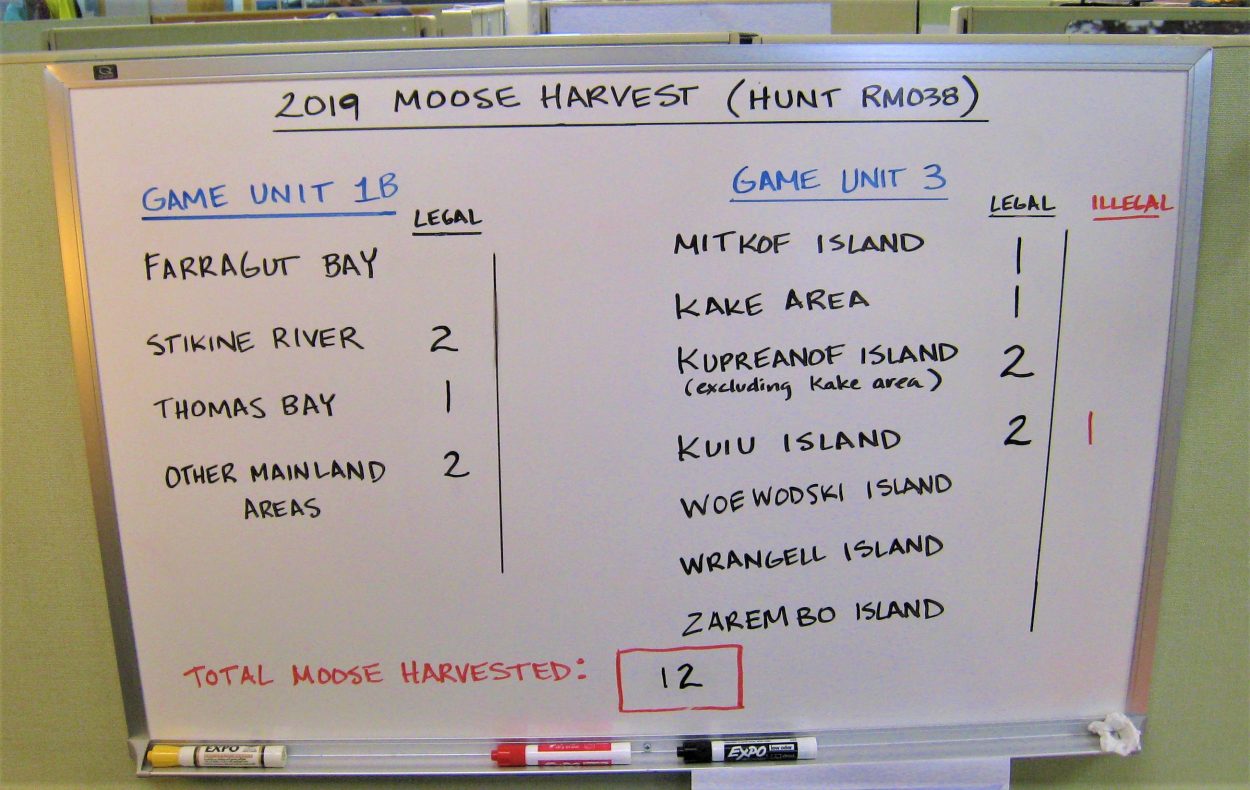 2019 MOOSE HARVEST (HUNT RM038)
GAME UNIT 1B
LEGAL
FARRAGUT BAY
STIKINE RIVER 2
THOMAS BAY 1
OTHER MAINLAND 2
AREAS
GAME UNIT 3
LEGAL ILLEGAL
MITKOF ISLAND 1
KAKE AREA 1
KUPREANOF ISLAND 2
(excluding Kake area)
KUIU ISLAND 2 1
WOEWODSKI ISLAND
WRANGELL ISLAND
ZAREMBO ISLAND
TOTAL MOOSE HARVESTED: 12
EXPO
EXPO low odor